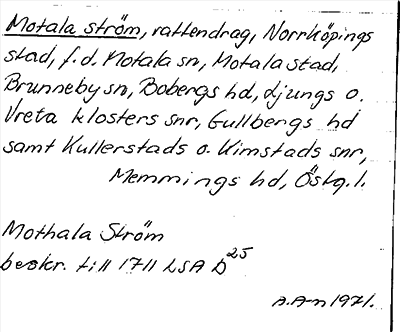 Motala ström, vattendrag, Norrköpings
stad, f.d. Motala sn, Motala stad,
Brunneby sn, Bobergs hd, Ljungs o.
Vreta klosters snr, Gullbergs hd
samt Kullerstads o. Kimstads snr,
Memmings hd, Östg. l.
Mothala Ström
beskr. till 1711 LSA D25
A.A-n 1971.